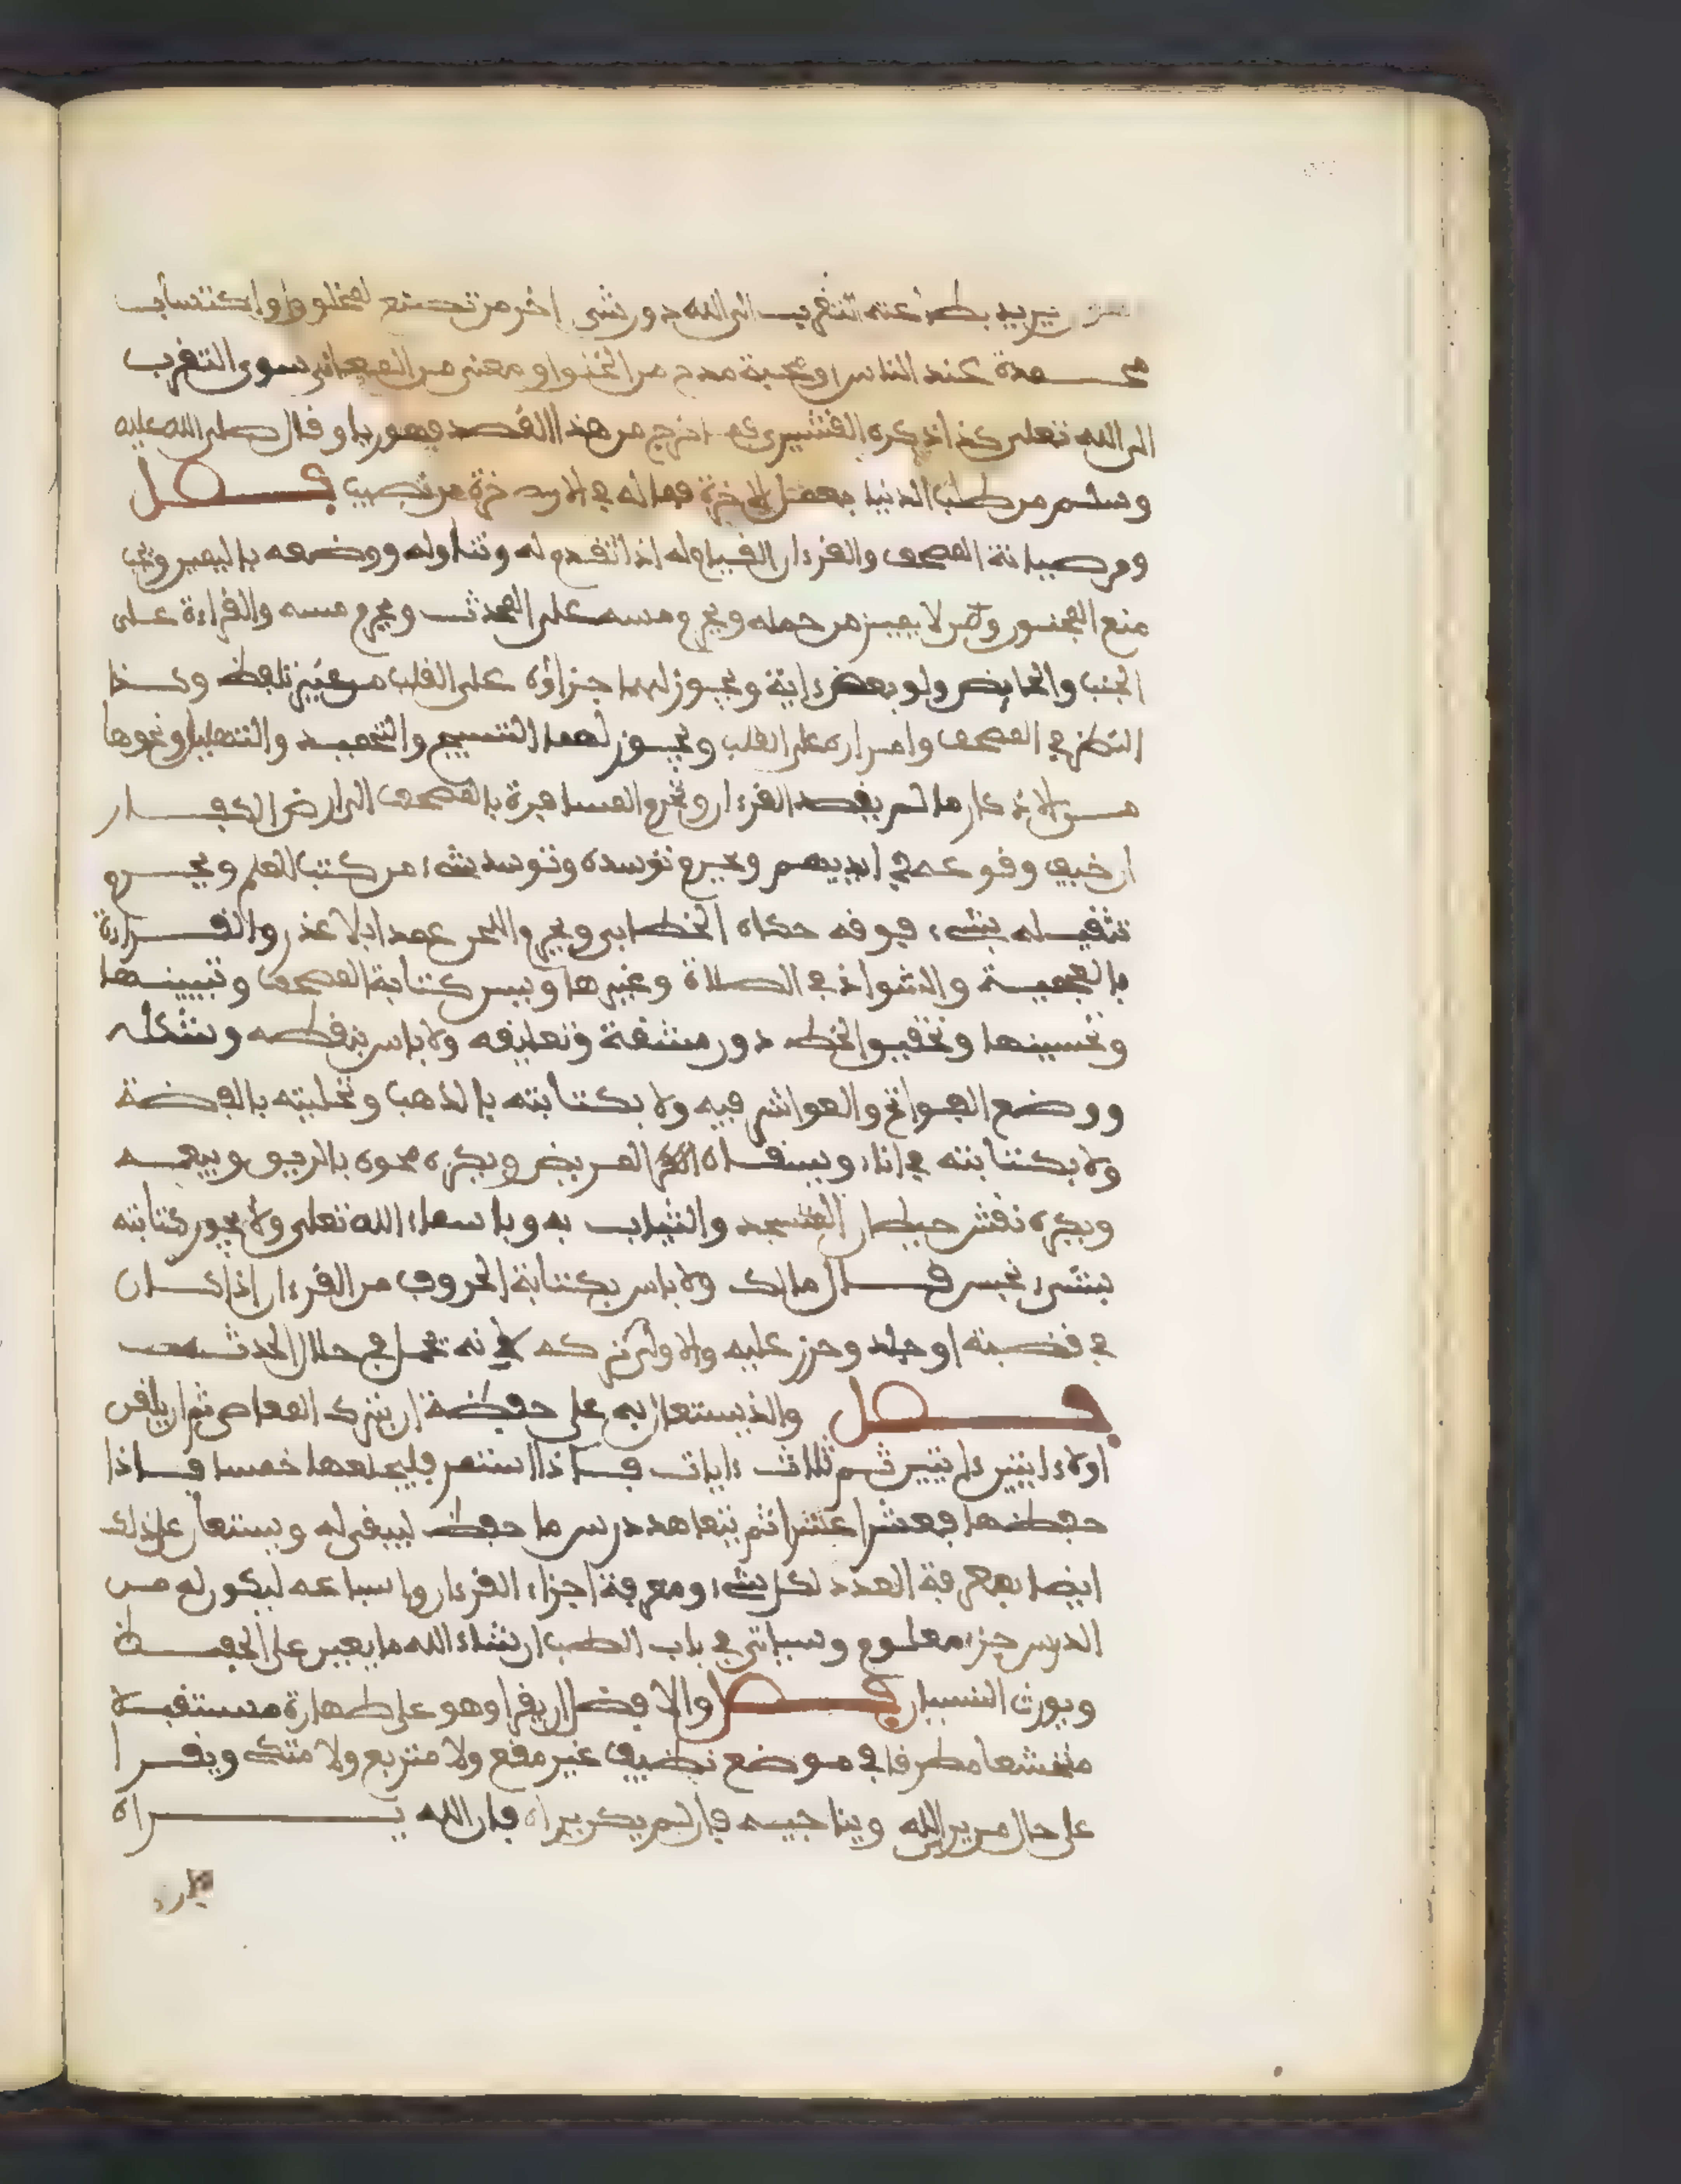 يريد بطاعته التقرب الى الله دون شىء اخر من تصنع لمخلوق او اكتساب
محمدة عند الناس او محبة مدح من الخلق او معنى من المعانى سوى التقرب
الى الله تعلى كذا ذكره القشيرى خرج من هذا القصد فهو رياء وقال صلى الله عليه
وسلم من طلب الدنيا بعمل الاخرة فما له في الاخرة من نصيب فصل
ومن صيانة المصحف والقرءان القيام له اذا تقدم له وتناوله ووضعه باليمين ويجب
منع المجنون ومن لا يميز من حمله ويحرم مسه على المحدث ويحرم مسه والقراءة على
الجنب والحايض ولو بعض ءاية ويجوز لهما اجراؤه على القلب من غير تلفظ وكذا
النظر في المصحف وامراره على القلب ويجوز لهما التسبيح والتحميد والتهليل ونحوها
من الاذكار ما لم يقصد القرءان ويحرم المسافرة بالمصحف الى ارض الكفار
ان خيف وقوعه في ايديهم ويحرم توسده وتوسد شىء من كتب العلم ويحرم
تثقيله بشىء فوقه حكاه الخطابى ويحرم اللحن عمدا بلا عذر والقراءة
بالعجمية والشواذ في الصلاة وغيرها ويسن كتابة المصحف وتبيينها
وتحسينها وتحقيق الخط دون مشقة وتعليقه ولا باس بنقطه وشكله
ووضع الفواتح والعواشر فيه ولا بكتابته بالذهب وتحليته بالفضة
ولا بكتابته في اناء ويسقاه المريض ويكره محوه بالريق وبيعه
ويكره نقش حيطان المسجد والثياب به وباسماء الله تعلى ولا يجوز كتابته
بشىء نجس قال مالك ولا باس بكتابة الحروف من القرءان اذا كان
في قصبته او جلد وحرز عليه والاولى تركه لانه يحمل في حال الحدث
فصل والذى يستعان به على حفظه ان يترك المعاصى ثم ان يلقن
اولا ءايتين ءايتين ثم ثلاث ءايات فاذا استمر فليجعلها خمسا فاذا
حفظها فعشرا عشرا ثم يتعاهد درس ما حفظ ليبقى له ويستعان على ذلك
ايضا بمعرفة العدد لكل شىء ومعرفة اجزاء القرءان واسباعه ليكون له من
الدرس جزء معلوم وسياتى في باب الطب ان شاء الله ما يعين على الحفظ
ويورث النسيان فصل والافضل ان يقرا وهو على طهارة مستقبلا
متخشعا مطرقا في موضع نظيف غير مقع ولا متربع ولا متك ويقرا
على حال من يرى الله ويناجيه فان لم يكن يراه فان الله يراه